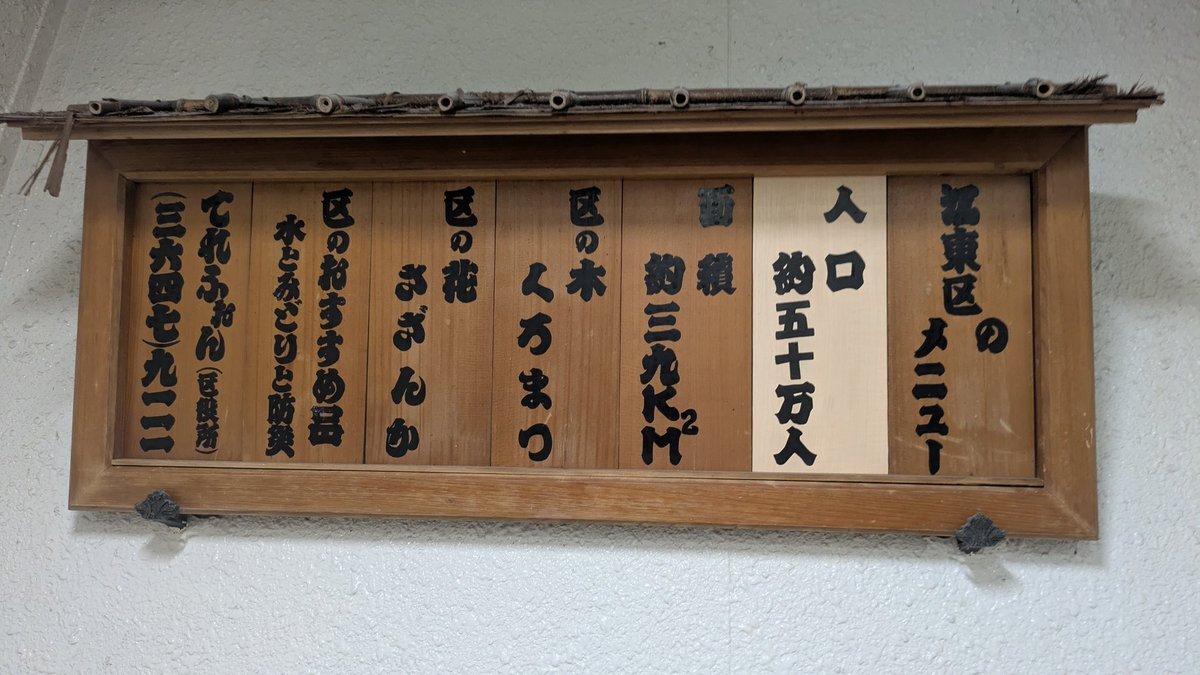 江東区の
メニュー
人口
約五十万人
面積
約三九KM2
区の木
くろまつ
区の花
さざんか
区のおすすめ品
水とみどりと防災
てれふぉん(区役所)
(三六四七)九一一一